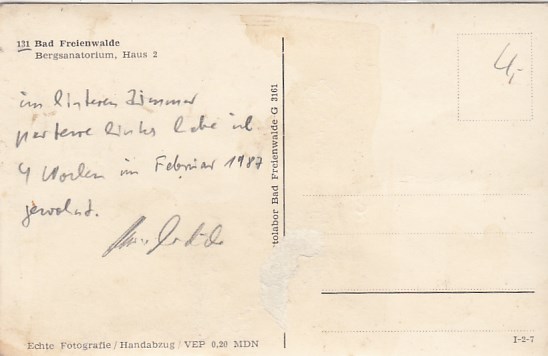 131 Bad Freienwalde
Bergsanatorium, Haus 2
im hinteren Zimmer
parterre links habe ich
4 Wochen im Februar 1987
gewohnt.
4,-
tolabor Bad Freienwalde G 3161
Echte Fotografie / Handabzug / VEP 0,20 MDN
I-2-7